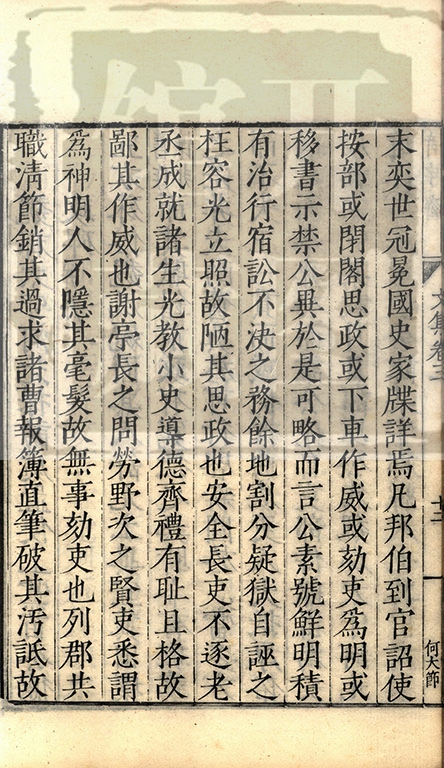 末奕世冠冕國史家牒詳焉凡邦伯到官詔使
按部或閉閣思政或下車作威或劾吏爲明或
移書示禁公異於是可略而言公素號鮮明積
有治行宿訟不決之務餘地割分疑獄自誣之
枉容光立照故陋其思政也安全長吏不逐老
丞成就諸生光教小史導德齊禮有耻且格故
鄙其作威也謝亭長之問勞野次之賢吏悉謂
爲神明人不隱其毫髮故無事劾吏也列郡共
職淸節銷其過求諸曹報簿直筆破其汚詆故
何大節